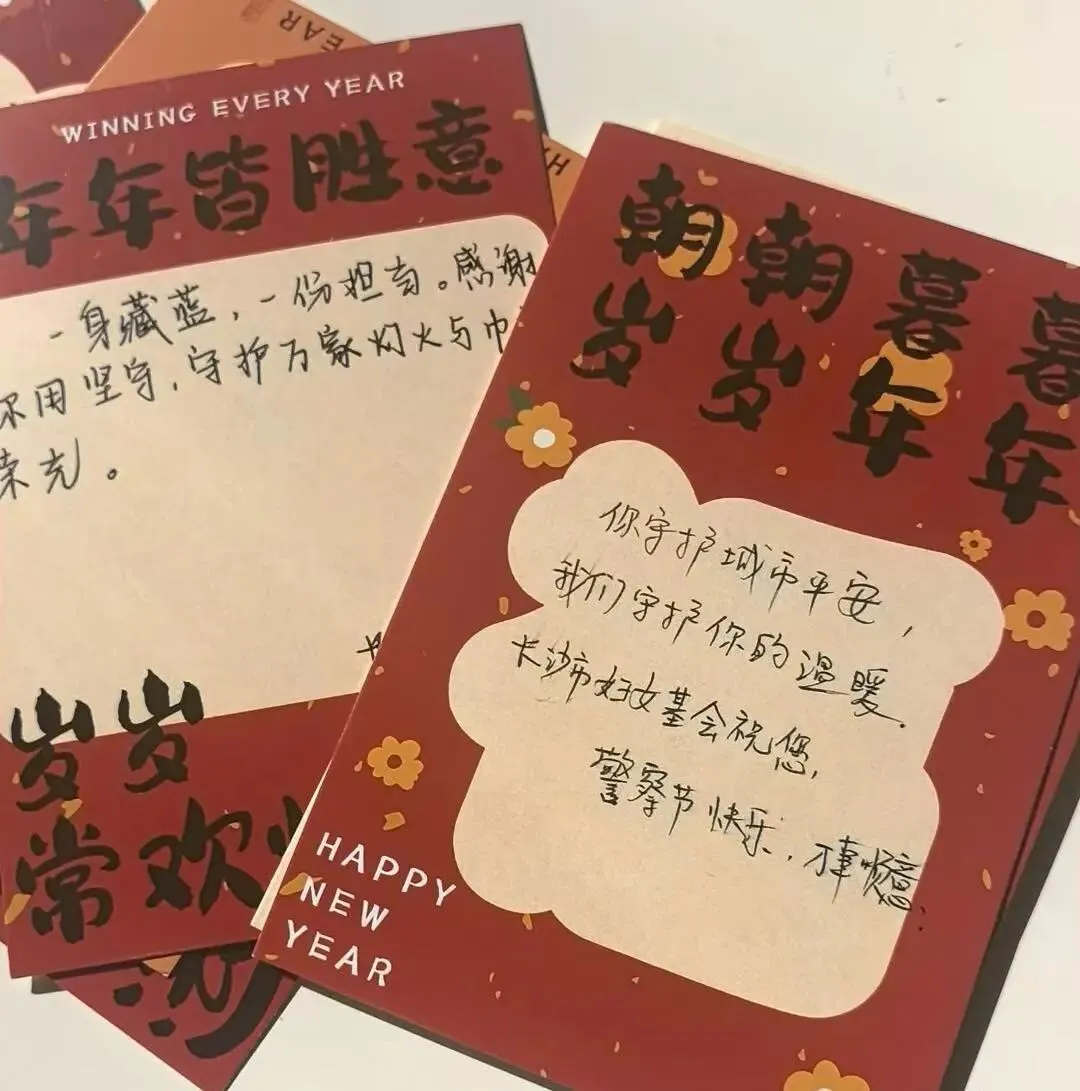 EAR
WINNING EVERY YEAR
年年皆胜意
一身藏蓝，一份担当。感谢
你用坚守，守护万家灯火与巾
荣光。
岁岁
常欢
朝朝暮暮
岁岁年年
你守护城市平安，
我们守护你的温暖.
长沙市妇女基会祝您,
警察节快乐，万事顺意.
HAPPY
NEW
YEAR